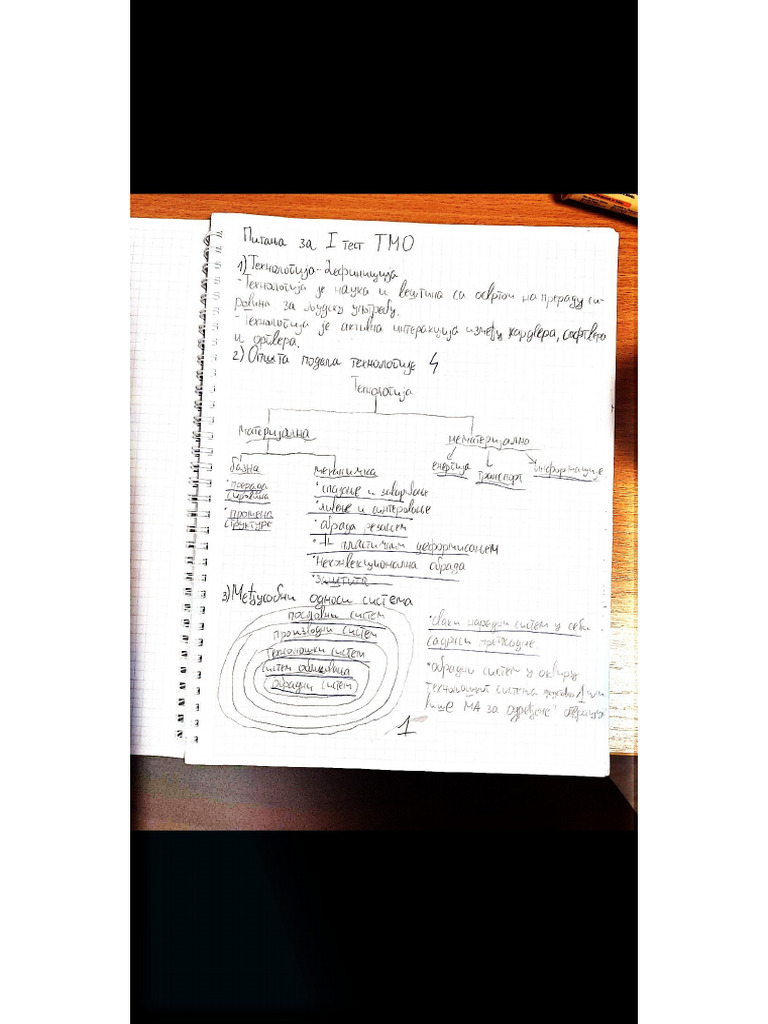 Питања за I тест ТМО
1) Технологија-дефиниција
-Технологија је наука и вештина са освртом на прераду си-
ровина за људску употребу.
-Технологија је активна интеракција између хардвера, софтвера
и дривера.
2) Општа подела технологије
Технологија
материјална
нематеријално
базна
механичка
енергија
транспорт
информације
• прерада
сировина
• промена
структуре
• спајање и заваривање
• ливење и синтеровање
• обрада резањем
• -||- пластичним деформисањем
• Неконвекционална обрада
• Заштита
3) Међусобни односи система
пословни систем
производни систем
технолошки систем
систем обликовања
обрадни систем
• сваки наредни систем у себи
садржи претходне.
• обрадни систем у оквиру
технолошког система 1 или
више МА за одређене операције
1